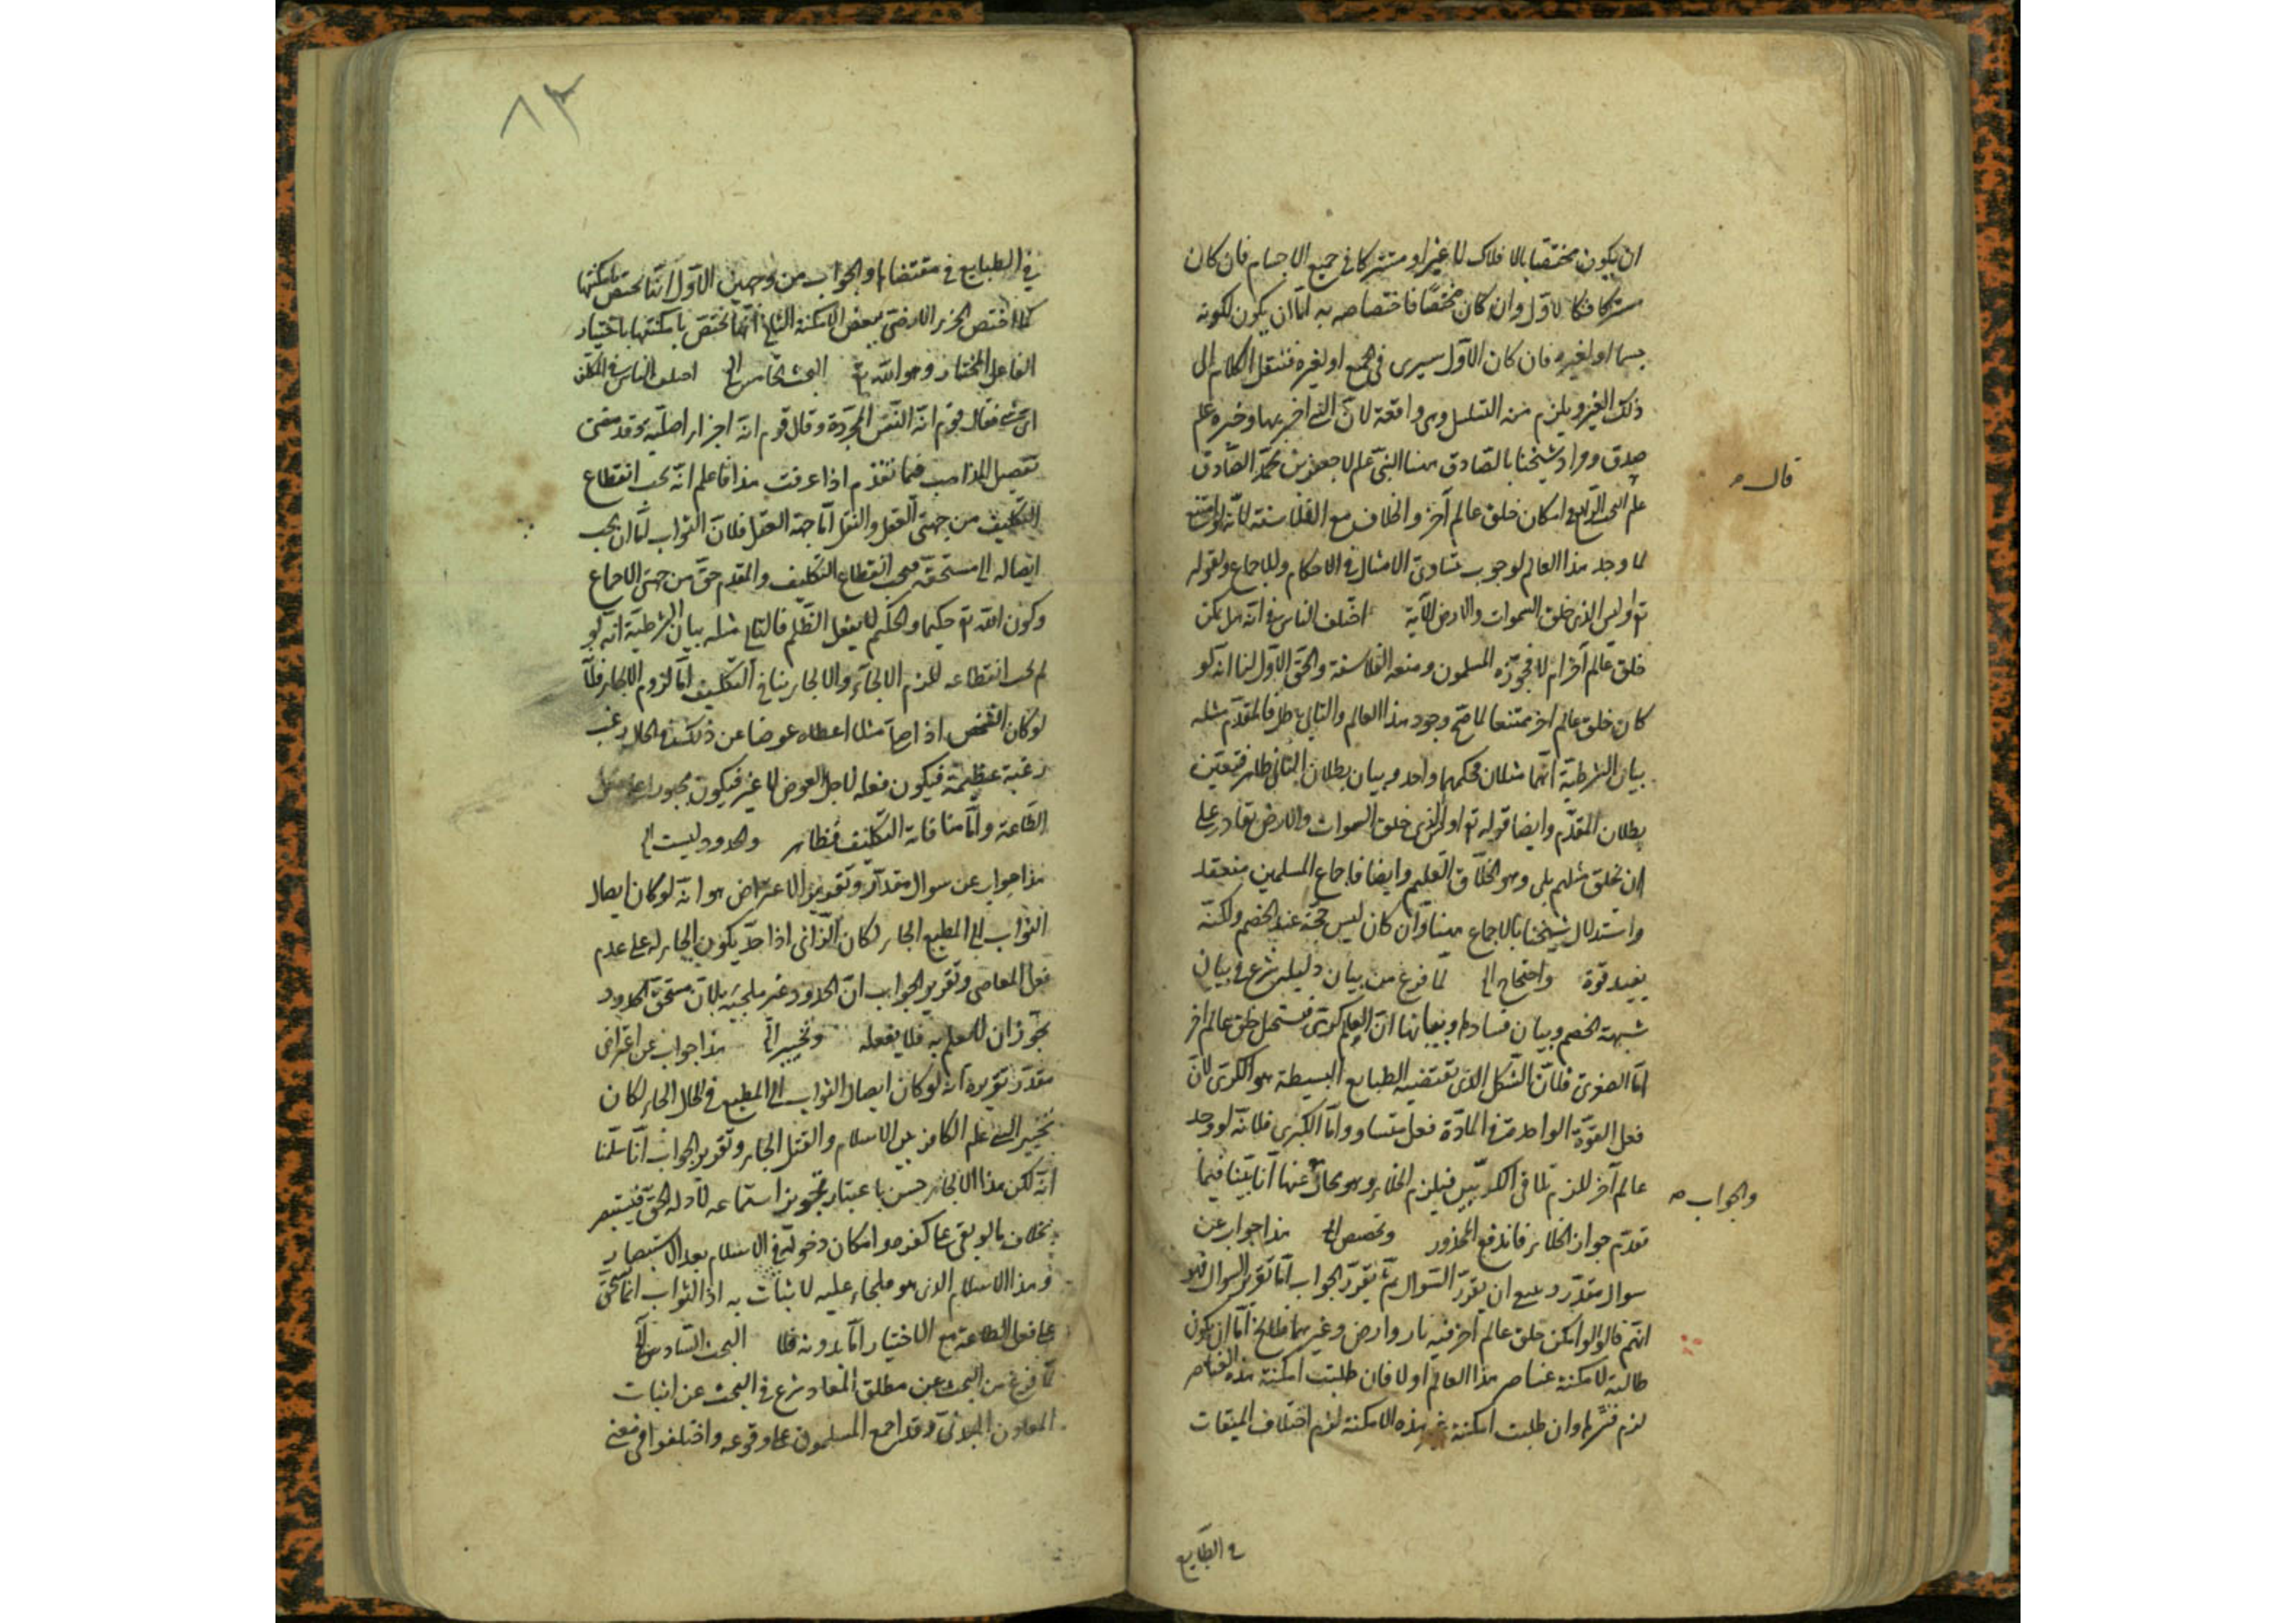 ان يكون مختصا بالافلاك لا غير او مشتركا في جميع الاجسام فان كان
مشتركا فكالاول وان كان مختصا فاختصاصه به اما ان يكون لكونه
جسما او لغيره فان كان الاول سيرى في الجميع او لغيره فننقل الكلام الى
ذلك الغير ويلزم منه التسلسل وهى واقعة لان النبى اخبر بها وخبره علم
صدق ومراد شيخنا بالصادق هنا النبى علم لا جعفر بن محمد الصادق
قال
علم البحث الرابع في امكان خلق عالم آخر والخلاف مع الفلاسفة لانه لو امتنع
لما وجد هذا العالم لوجوب تساوى الامثال في الاحكام وللاجماع ولقوله
تع اوليس الذى خلق السموات والارض الآية اختلف الناس في انه هل يمكن
خلق عالم آخر ام لا فجوزه المسلمون ومنعه الفلاسفة والحق الاول لنا انه لو
كان خلق عالم اخر ممتنعا لما صح وجود هذا العالم والتالى ظ فالمقدم مثله
بيان الشرطية انهما مثلان فحكمهما واحد وبيان بطلان التالى ظاهر فتعين
بطلان المقدم وايضا قوله تع اوليس الذى خلق السموات والارض بقادر على
ان يخلق مثلهم بلى وهو الخلاق العليم وايضا فاجماع المسلمين منعقد
واستدلال شيخنا بالاجماع هنا وان كان ليس حجة عند الخصم ولكنه
يفيد قوة واحتجاج الخ لما فرغ من بيان دليله شرع في بيان
شبهة الخصم وبيان فسادها وبيانها ان العالم كرى فيستحيل خلق عالم اخر
اما الصغرى فلان الشكل الذى تقتضيه الطبايع البسيطة هو الكرى لان
فعل القوة الواحدة في المادة فعل متساو واما الكبرى فلانه لو وجد
عالم آخر للزم تلاقى الكرتين فيلزم الخلاء وهو محال
والجواب
عنها انا بينا فيما
تقدم جواز الخلاء فاندفع المحذور وتخصص الخ هذا جواب عن
سوال مقدر وينبغى ان يقرر السوال ثم يقرر الجواب اما تقرير السوال فهو
انهم قالوا لو امكن خلق عالم آخر فيه نار وارض وغيرهما فلا يخ اما ان يكون
طالبة لامكنة عناصر هذا العالم او لا فان طلبت امكنة هذه العناصر
لزم قسرها وان طلبت امكنة غير هذه الامكنة لزم اختلاف المتفقات
في الطبايع
٨٣
في الطبايع في مقتضاها والجواب من وجهين الاول انها تختص بامكنتها
كما اختص الجزء الارضى ببعض الامكنة الثانى انها تختص بامكنتها باختيار
الفاعل المختار وهو الله تع البحث الخامس الخ اختلف الناس في المكلف
اى شئ فقال قوم انه النفس المجردة وقال قوم انه اجزاء اصلية وقد مضى
تفصيل المذاهب فيما تقدم اذا عرفت هذا فاعلم انه يجب انقطاع
التكليف من جهتى العقل والنقل اما جهة العقل فلان الثواب لما ان يجب
ايصاله الى مستحقه فيجب انقطاع التكليف والمقدم حق من جهتى الاجماع
وكون الله تع حكيما والحكيم لا يفعل الظلم فالتالى مثله بيان الشرطية انه لو
لم يجب انقطاعه للزم الالجاء والالجاء ينافى التكليف اما لزوم الالجاء فلانا
لو كان الشخص اذا صلى مثلا اعطاه عوضا عن ذلك في الحال رغب
رغبة عظيمة فيكون فعله لاجل العوض لا غير فيكون مجبورا على فعل
الطاعة واما منافاة التكليف فظاهر والحدود ليست الخ
هذا جواب عن سوال مقدر وتقرير الاعتراض هو انه لو كان ايصال
الثواب الى المطيع الجاء لكان الزانى اذا حد يكون الجاء له على عدم
فعل المعاصى وتقرير الجواب ان الحدود غير ملجئة لان مستحق الحدود
يجوز ان لا يعلم به فلا يفعله وتخيير الخ هذا جواب عن اعتراض
مقدر تقريره انه لو كان ايصال الثواب الى المطيع في الحال الجاء لكان
تخيير النبى علم الكافر بين الاسلام والقتل الجاء وتقرير الجواب انا سلمنا
انه لكن هذا الالجاء حسن باعتبار تجويز استماعه لادلة الحق فيستبصر
بخلاف ما لو بقى على كفره وامكان دخوله في الاسلام بعد الاستبصار
وهذا الاسلام الذى هو ملجاء عليه لا يثاب به اذ الثواب انما يستحق
على فعل الطاعة مع الاختيار اما بدونه فلا البحث السادس الخ
لما فرغ من البحث عن مطلق المعاد شرع في البحث عن اثبات
المعاد البدنى وقد اجمع المسلمون على وقوعه واختلفوا في معنى